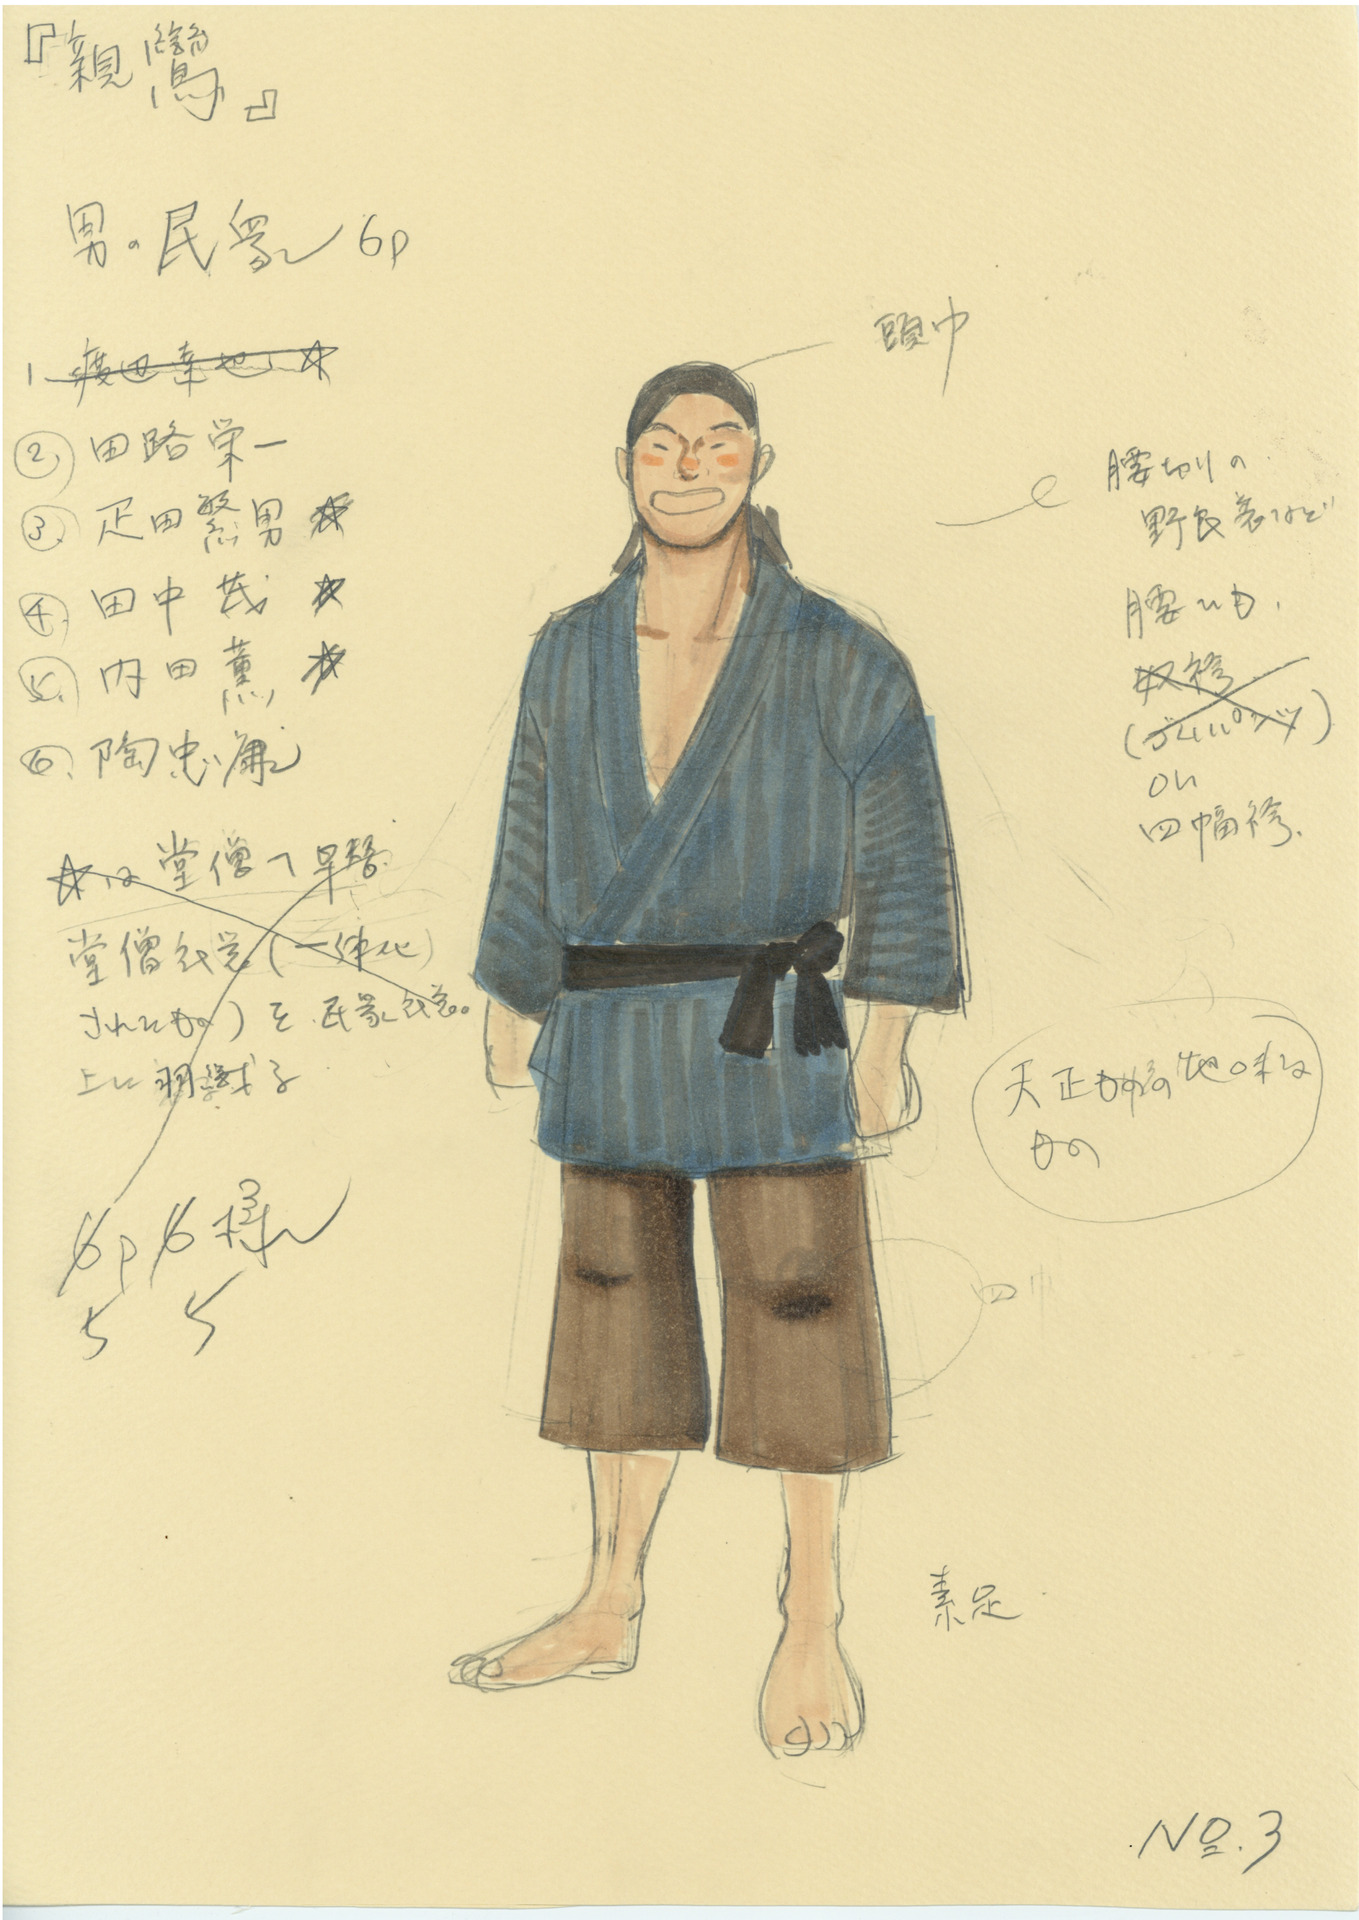 『親鸞』
男の民衆 6p
1. 渡辺幸也 ☆
② 田路栄一
③ 疋田繁男 ☆
④ 田中茂 ☆
⑤ 内田薫 ☆
⑥ 陶忠廉
☆は堂僧へ早替
堂僧衣裳(一体化
されたもの)を民衆衣裳。
上に羽織る
6p 6様
5 5
頭巾
腰切りの
野良着など
腰ひも.
奴袴
(ゴムパンツ)
or
四幅袴.
天正もめんの地味な
もの
四巾
素足
No.3